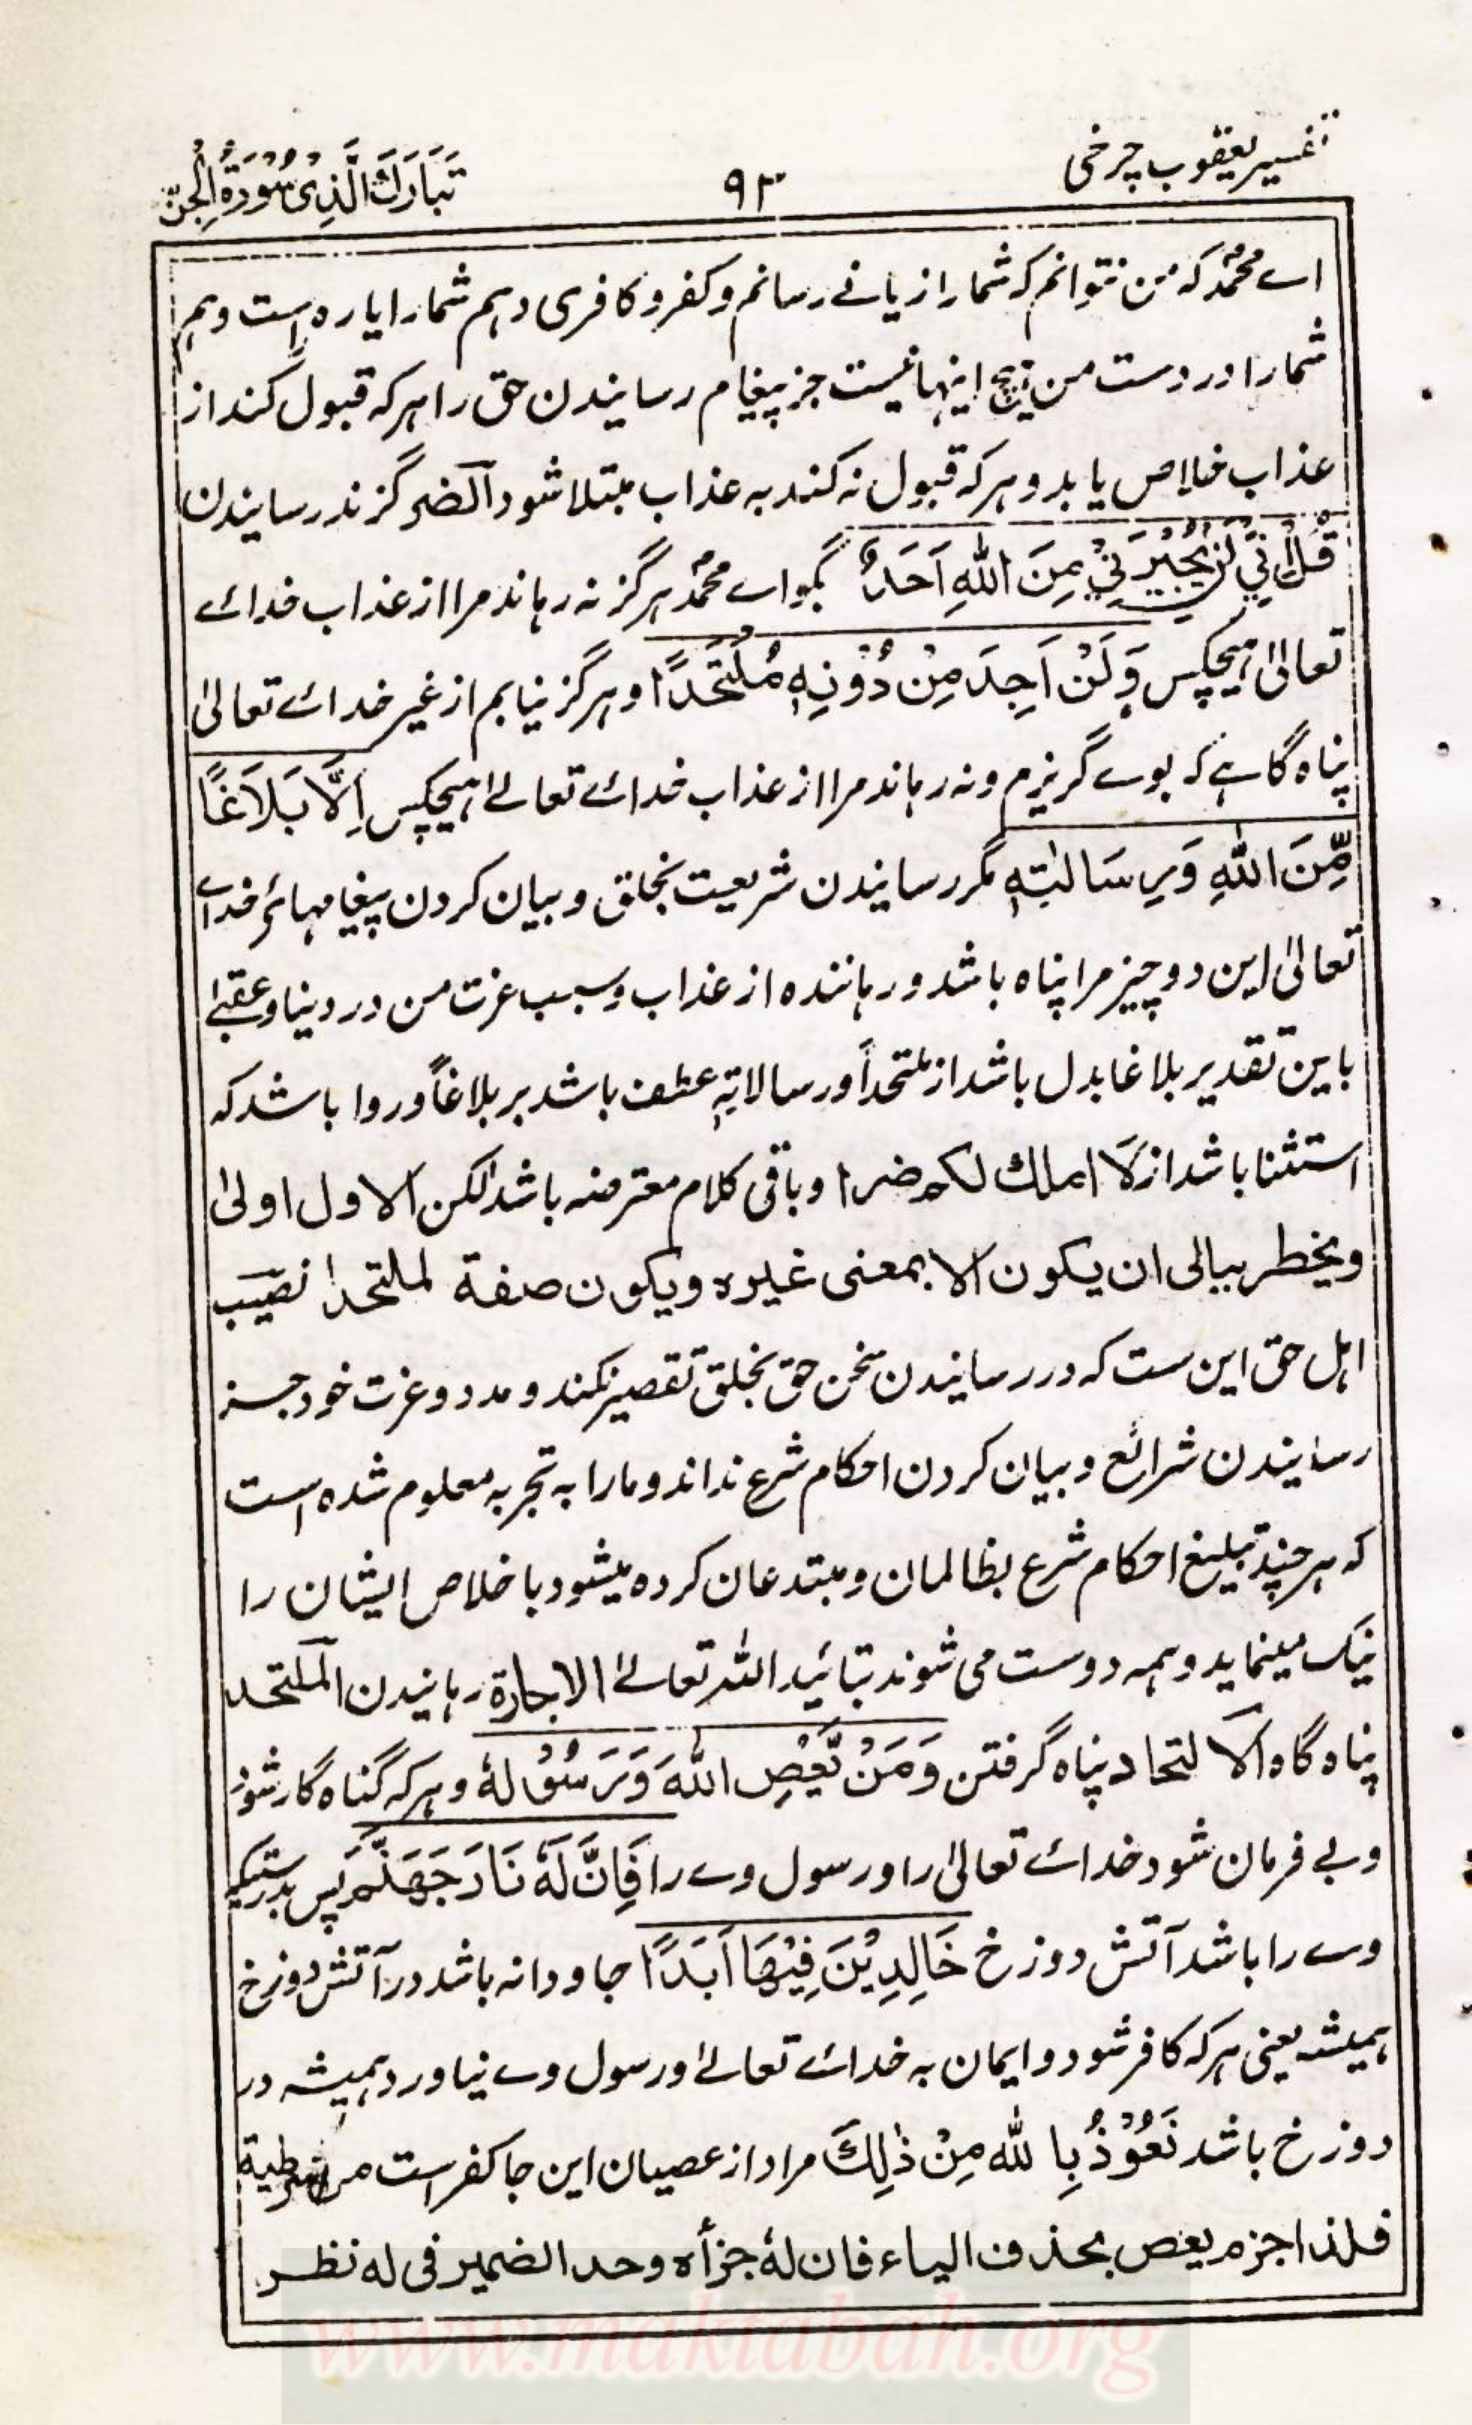 تفسیر یعقوب چرخی
۹۳
تَبَارَكَ الَّذِیْ سُوْرَةُ الْجِنّ
اے محمدؐ کہ من نتوانم کہ شمارا زیانے رسانم و کفر و کافری دہم شمارا یا راہ راست دہم
شمارا در دست من ہیچ اینہا نیست جز پیغام رسانیدن حق را ہر کہ قبول کند از
عذاب خلاص یابد و ہر کہ قبول نہ کند بہ عذاب مبتلا شود اَلضر گزند رسانیدن
قُلْ اِنِّیْ لَنْ یُّجِیْرَنِیْ مِنَ اللّٰهِ اَحَدٌ بگو اے محمدؐ ہرگز نہ رہاند مرا از عذاب خدائے
تعالیٰ ہیچکس وَلَنْ اَجِدَ مِنْ دُوْنِهٖ مُلْتَحَدًا و ہرگز نیابم از غیر خدائے تعالیٰ
پناہ گاہے کہ بوے گریزم و نہ رہاند مرا از عذاب خدائے تعالےٰ ہیچکس اِلَّا بَلَاغًا
مِّنَ اللّٰهِ وَرِسَالٰتِهٖ مگر رسانیدن شریعت بخلق و بیان کردن پیغامہائے خدائے
تعالیٰ این دو چیز مرا پناہ باشد و رہانندہ از عذاب و سبب عزت من در دنیا و عقبےٰ
باین تقدیر بلاغا بدل باشد از ملتحداً و رسالاتہٖ عطف باشد بر بلاغاً و روا باشد کہ
استثنا باشد از لَا املك لكم ضرا و باقی کلام معترضہ باشد لکن الاول اولیٰ
ویخطر ببالی ان یکون الا بمعنی غیرہ ویکون صفة لملتحدا نصیب
اہل حق این ست کہ در رسانیدن سخن حق بخلق تقصیر نکند و مدد و عزت خود جز
رسانیدن شرائع و بیان کردن احکام شرع نداند و مارا بہ تجربہ معلوم شدہ است
کہ ہر چند تبلیغ احکام شرع بظالمان و مبتدعان کردہ میشود با خلاص ایشان را
نیک مینماید و ہمہ دوست می شوند بتائید اللہ تعالےٰ الاجارة رہانیدن الملتحد
پناہ گاہ اَلالتحاد پناہ گرفتن وَمَنْ یَّعْصِ اللّٰهَ وَرَسُوْلَهٗ و ہر کہ گناہ گار شود
و بے فرمان شود خدائے تعالیٰ را و رسول وے را فَاِنَّ لَهٗ نَارَ جَهَنَّمَ پس بدرستیکہ
وے را باشد آتش دوزخ خَالِدِیْنَ فِیْهَا اَبَدًا جاودانہ باشد در آتش دوزخ
ہمیشہ یعنی ہر کہ کافر شود و ایمان بہ خدائے تعالےٰ و رسول وے نیاورد ہمیشہ در
دوزخ باشد نَعُوْذُ بِاللّٰهِ مِنْ ذٰلِكَ مراد از عصیان این جا کفر است من شرطیة
فلذا جزم یعص بحذف الیاء فان لهٗ جزأه وحد الضمیر فی له نظر
www.maktabah.org